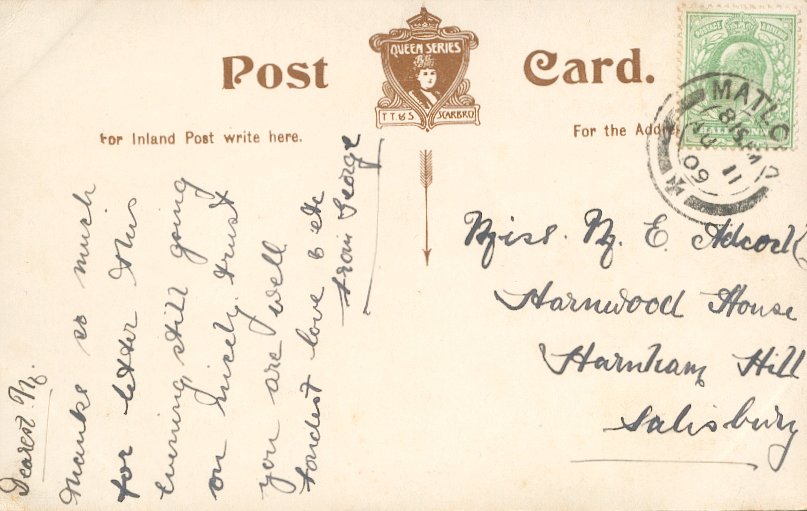 Post Card.
QUEEN SERIES
T.T.& S SCARBRO
For Inland Post write here.
For the Addre
HALFPENNY
MATLO
11
09
Dearest N.
Thanks so much
for letter this
evening, still going
on nicely, trust
you are well.
fondest love & etc
from George
Miss. N. E. Adcock
Harnwood House
Harnham Hill
Salisbury